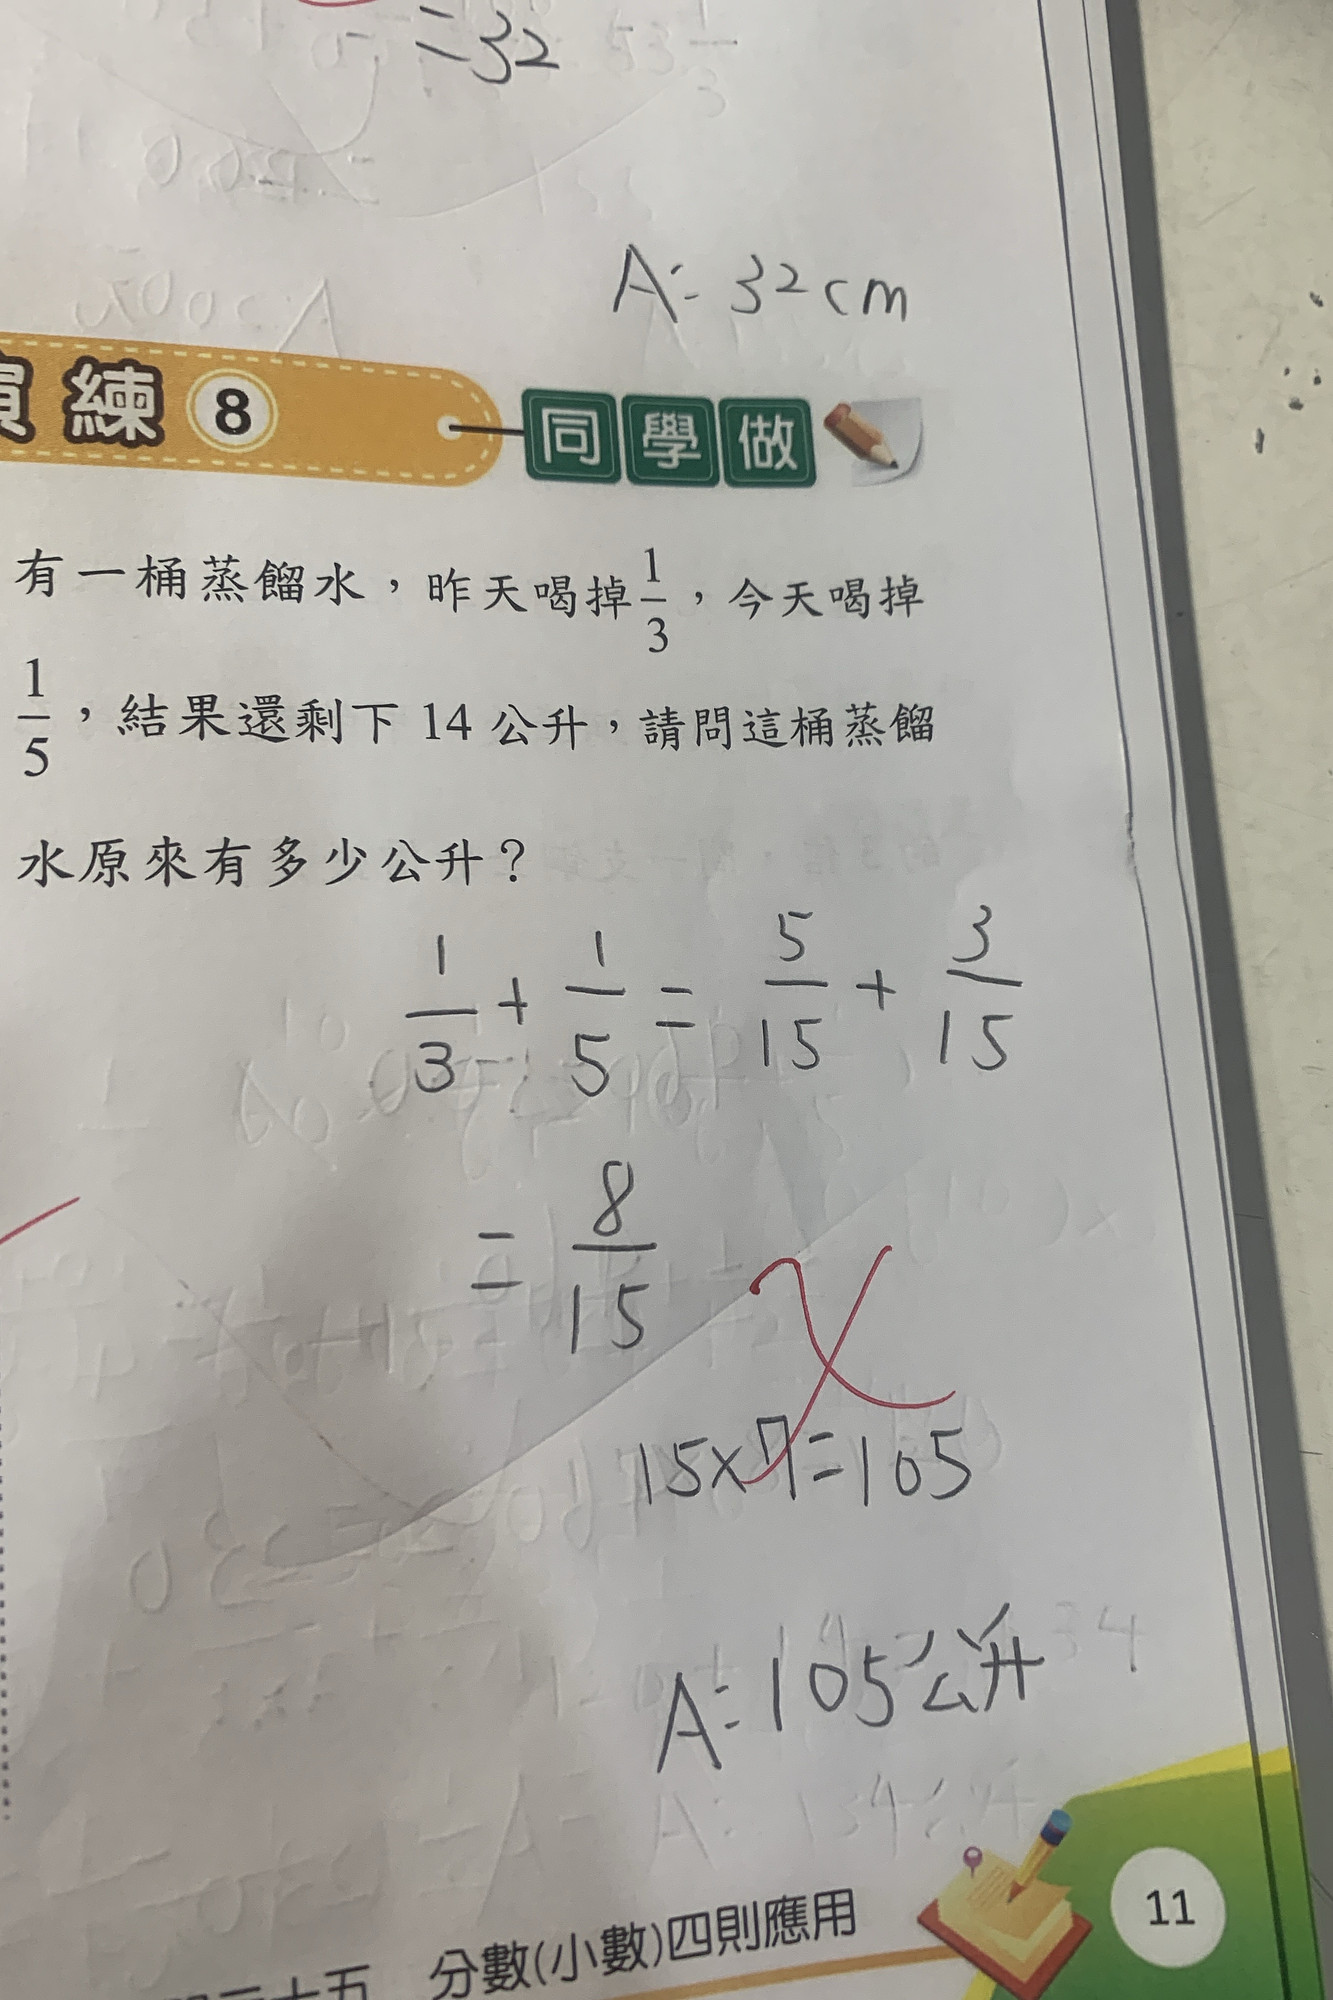 =32
A:32cm
練 8 同學做
有一桶蒸餾水，昨天喝掉1/3，今天喝掉
1/5，結果還剩下 14 公升，請問這桶蒸餾
水原來有多少公升？
1/3+1/5=5/15+3/15
=8/15
15×7=105
A:105公升
十五 分數(小數)四則應用
11